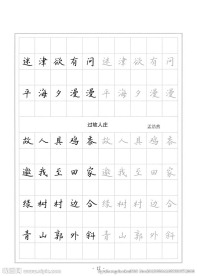 迷津欲有问迷津欲有问
平海夕漫漫平海夕漫漫
过故人庄 孟浩然
故人具鸡黍故人具鸡黍
邀我至田家邀我至田家
绿树村边合绿树村边合
青山郭外斜青山郭外斜